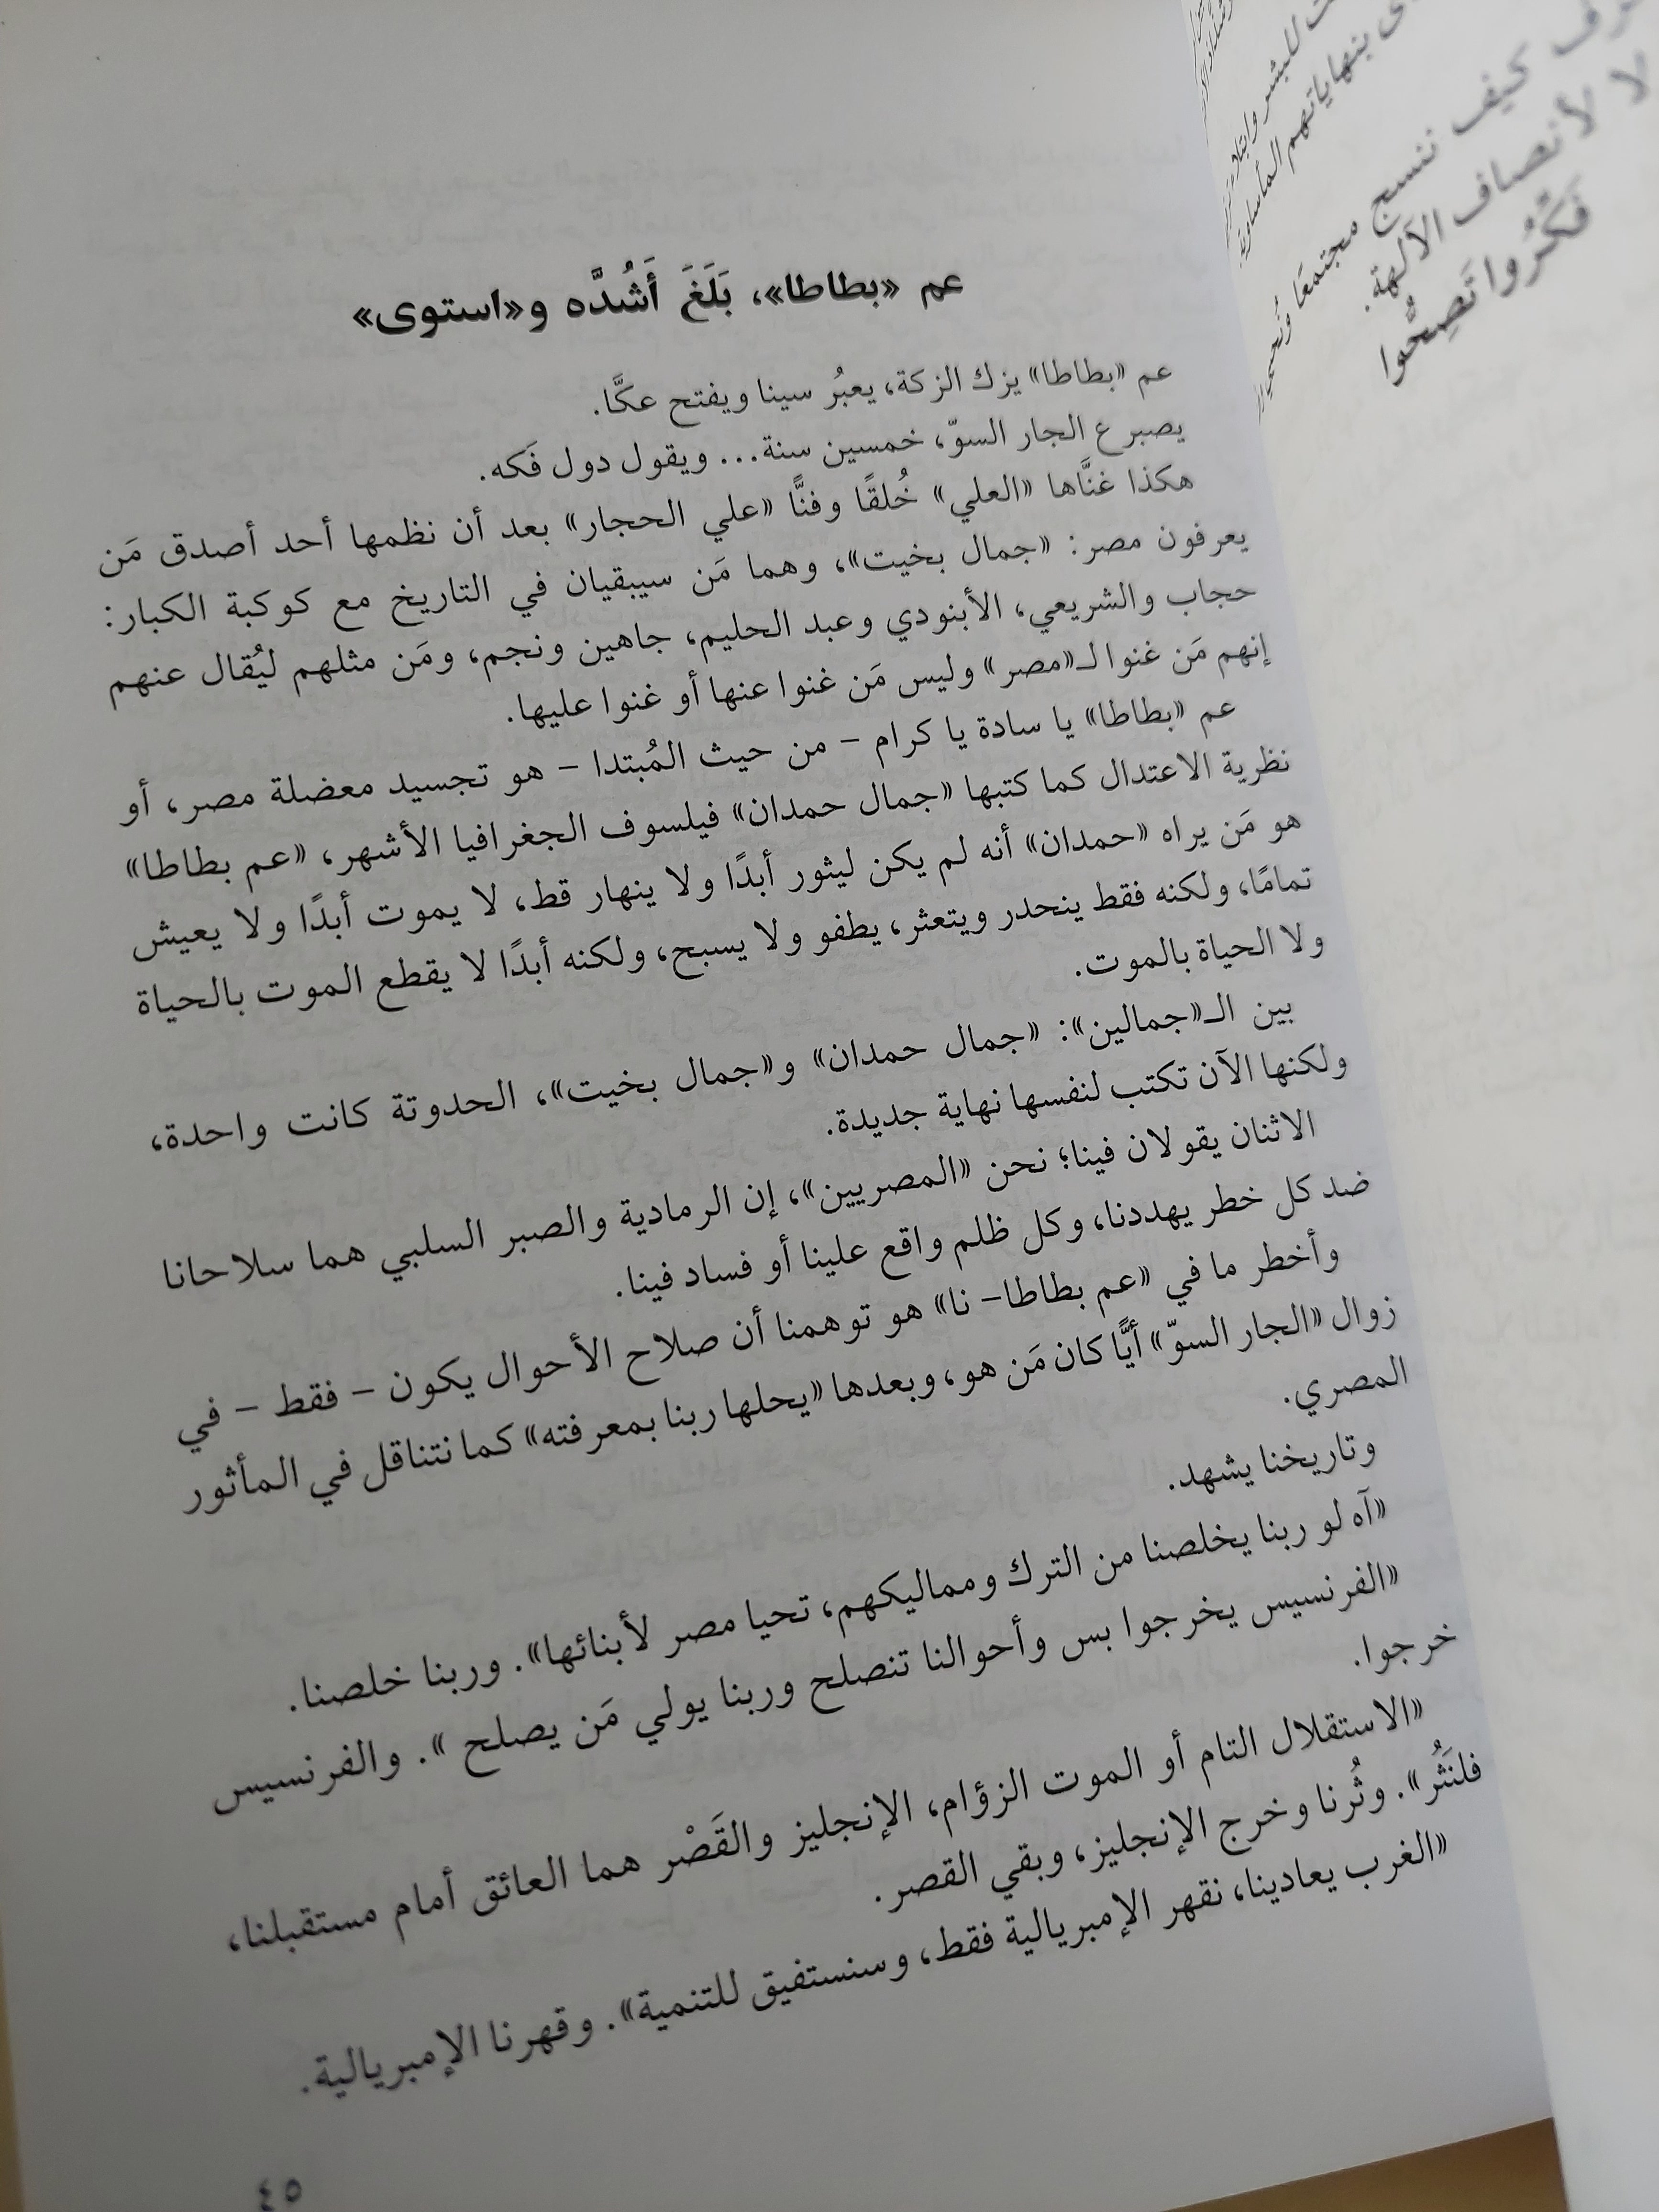 عم «بطاطا»، بَلَغَ أَشُدَّه و«استوى»
عم «بطاطا» يزك الزكة، يعبُر سينا ويفتح عكَّا.
يصبر ع الجار السوّ، خمسين سنة... ويقول دول فَكه.
هكذا غنَّاها «العلي» خُلقًا وفنًّا «علي الحجار» بعد أن نظمها أحد أصدق مَن
يعرفون مصر: «جمال بخيت»، وهما مَن سيبقيان في التاريخ مع كوكبة الكبار:
حجاب والشريعي، الأبنودي وعبد الحليم، جاهين ونجم، ومَن مثلهم ليُقال عنهم
إنهم مَن غنوا لـ«مصر» وليس مَن غنوا عنها أو غنوا عليها.
عم «بطاطا» يا سادة يا كرام – من حيث المُبتدا – هو تجسيد معضلة مصر، أو
نظرية الاعتدال كما كتبها «جمال حمدان» فيلسوف الجغرافيا الأشهر، «عم بطاطا»
هو مَن يراه «حمدان» أنه لم يكن ليثور أبدًا ولا ينهار قط، لا يموت أبدًا ولا يعيش
تمامًا، ولكنه فقط ينحدر ويتعثر، يطفو ولا يسبح، ولكنه أبدًا لا يقطع الموت بالحياة
ولا الحياة بالموت.
بين الـ«جمالين»: «جمال حمدان» و«جمال بخيت»، الحدوتة كانت واحدة،
ولكنها الآن تكتب لنفسها نهاية جديدة.
الاثنان يقولان فينا؛ نحن «المصريين»، إن الرمادية والصبر السلبي هما سلاحانا
ضد كل خطر يهددنا، وكل ظلم واقع علينا أو فساد فينا.
وأخطر ما في «عم بطاطا– نا» هو توهمنا أن صلاح الأحوال يكون – فقط – في
زوال «الجار السوّ» أيًّا كان مَن هو، وبعدها «يحلها ربنا بمعرفته» كما نتناقل في المأثور
المصري.
وتاريخنا يشهد.
«آه لو ربنا يخلصنا من الترك ومماليكهم، تحيا مصر لأبنائها». وربنا خلصنا.
«الفرنسيس يخرجوا بس وأحوالنا تنصلح وربنا يولي مَن يصلح ». والفرنسيس
خرجوا.
«الاستقلال التام أو الموت الزؤام، الإنجليز والقَصْر هما العائق أمام مستقبلنا،
فلنَثُر». وثُرنا وخرج الإنجليز، وبقي القصر.
«الغرب يعادينا، نقهر الإمبريالية فقط، وسنستفيق للتنمية». وقهرنا الإمبريالية.
٤٥
للبشر
بنهاياتهم المأساوية.
كيف ننسج مجتمعًا
لا لأنصاف الآلهة.
فَكِّرُوا تَصِحُّوا